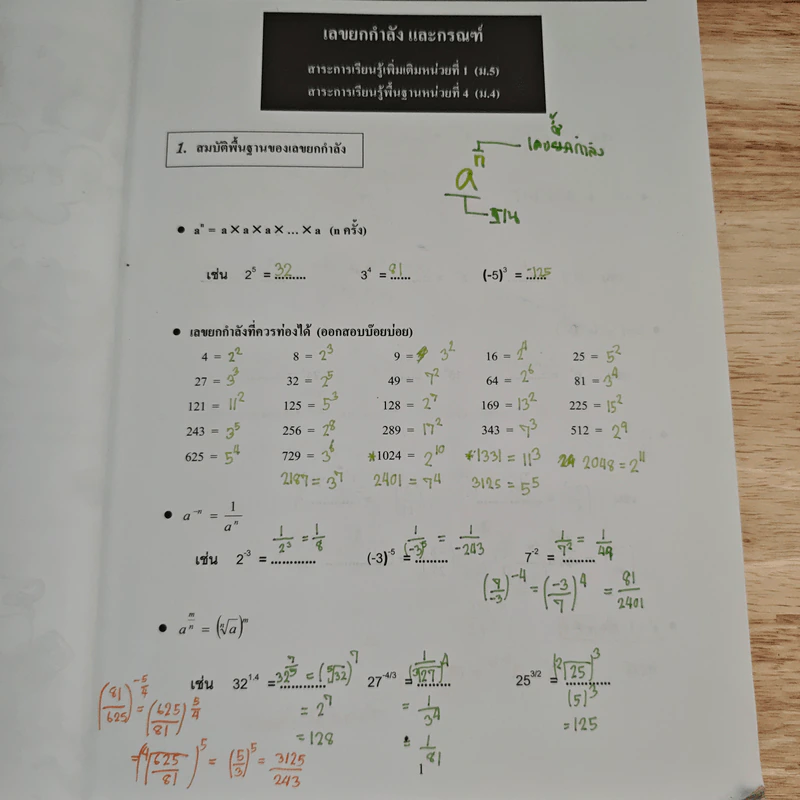 เลขยกกำลัง และกรณฑ์
สาระการเรียนรู้เพิ่มเติมหน่วยที่ 1 (ม.5)
สาระการเรียนรู้พื้นฐานหน่วยที่ 4 (ม.4)
1. สมบัติพื้นฐานของเลขยกกำลัง
aⁿ
เลขชี้กำลัง
ฐาน
• aⁿ = a × a × a × ... × a (n ครั้ง)
เช่น 2⁵ = 32 3⁴ = 81 (-5)³ = -125
• เลขยกกำลังที่ควรท่องได้ (ออกสอบบ๊อยบ่อย)
4 = 2² 8 = 2³ 9 = 3² 16 = 2⁴ 25 = 5²
27 = 3³ 32 = 2⁵ 49 = 7² 64 = 2⁶ 81 = 3⁴
121 = 11² 125 = 5³ 128 = 2⁷ 169 = 13² 225 = 15²
243 = 3⁵ 256 = 2⁸ 289 = 17² 343 = 7³ 512 = 2⁹
625 = 5⁴ 729 = 3⁶ *1024 = 2¹⁰ *1331 = 11³ 2048 = 2¹¹
2187 = 3⁷ 2401 = 7⁴ 3125 = 5⁵
• a⁻ⁿ = 1/aⁿ
เช่น 2⁻³ = 1/2³ = 1/8 (-3)⁻⁵ = 1/(-3)⁵ = 1/-243 7⁻² = 1/7² = 1/49
(7/-3)⁻⁴ = (-3/7)⁴ = 81/2401
• a^(m/n) = (ⁿ√a)^m
เช่น 32^1.4 = 32^(7/5) = (⁵√32)⁷ 27^(-4/3) = 1/(³√27)⁴ 25^(3/2) = (²√25)³
= 2⁷ = 1/3⁴ (5)³
= 128 = 1/81 = 125
(81/625)^(-5/4) = (625/81)^(5/4)
= (⁴√(625/81))⁵ = (5/3)⁵ = 3125/243
1